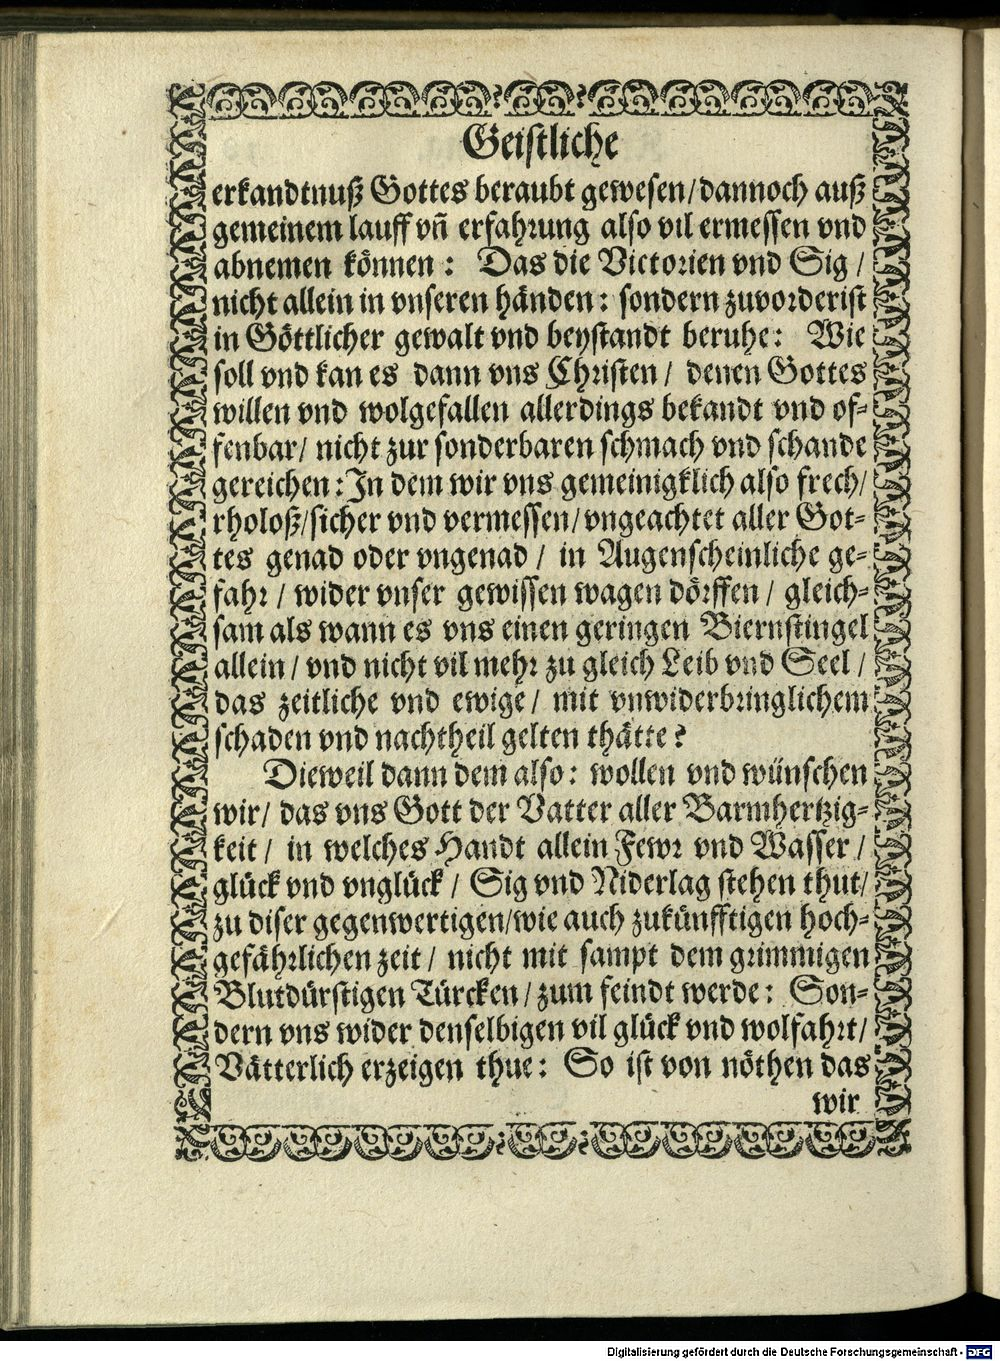 Geistliche
erkandtnuß Gottes beraubt gewesen/dannoch auß
gemeinem lauff vñ erfahrung also vil ermessen vnd
abnemen können : Das die Victorien vnd Sig /
nicht allein in vnseren händen : sondern zuvorderist
in Göttlicher gewalt vnd beystandt beruhe : Wie
soll vnd kan es dann vns Christen / denen Gottes
willen vnd wolgefallen allerdings bekandt vnd of-
fenbar/ nicht zur sonderbaren schmach vnd schande
gereichen : In dem wir vns gemeinigklich also frech/
rholoß/sicher vnd vermessen/vngeachtet aller Got-
tes genad oder vngenad / in Augenscheinliche ge-
fahr / wider vnser gewissen wagen dörffen / gleich-
sam als wann es vns einen geringen Biernstingel
allein / vnd nicht vil mehr zu gleich Leib vnd Seel /
das zeitliche vnd ewige / mit vnwiderbringlichem
schaden vnd nachtheil gelten thätte ?
Dieweil dann dem also : wollen vnd wünschen
wir/ das vns Gott der Vatter aller Barmhertzig-
keit / in welches Handt allein Fewr vnd Wasser /
glück vnd vnglück / Sig vnd Niderlag stehen thut/
zu diser gegenwertigen/wie auch zukünfftigen hoch-
gefährlichen zeit / nicht mit sampt dem grimmigen
Blutdürstigen Türcken / zum feindt werde : Son-
dern vns wider denselbigen vil glück vnd wolfahrt/
Vätterlich erzeigen thue : So ist von nöthen das
wir
Digitalisierung gefördert durch die Deutsche Forschungsgemeinschaft - DFG